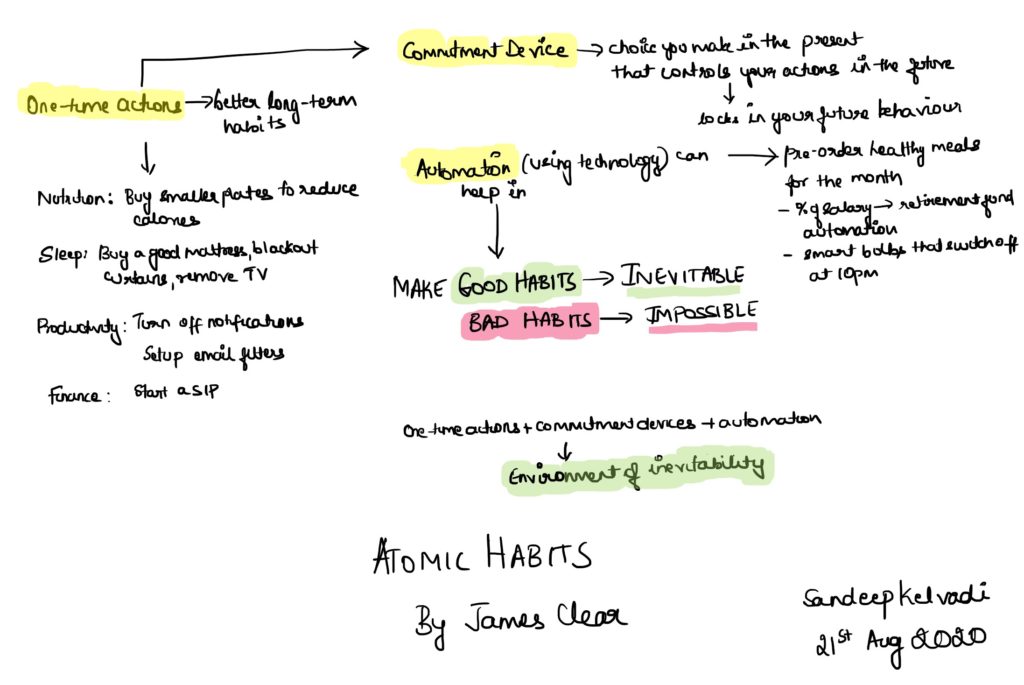 One-time actions → better long-term
habits
Nutrition: Buy smaller plates to reduce
calories
Sleep: Buy a good mattress, blackout
curtains, remove TV
Productivity: Turn off notifications
Setup email filters
Finance: Start a SIP
Commitment Device → choice you make in the present
that controls your actions in the future
locks in your future behaviour
Automation (using technology) can
help in
→ pre-order healthy meals
for the month
- % of salary → retirement fund
automation
- smart bulbs that switch off
at 10pm
MAKE GOOD HABITS → INEVITABLE
BAD HABITS → IMPOSSIBLE
One-time actions + commitment devices + automation
Environment of inevitability
ATOMIC HABITS
By James Clear
Sandeep Kelvadi
21st Aug 2020